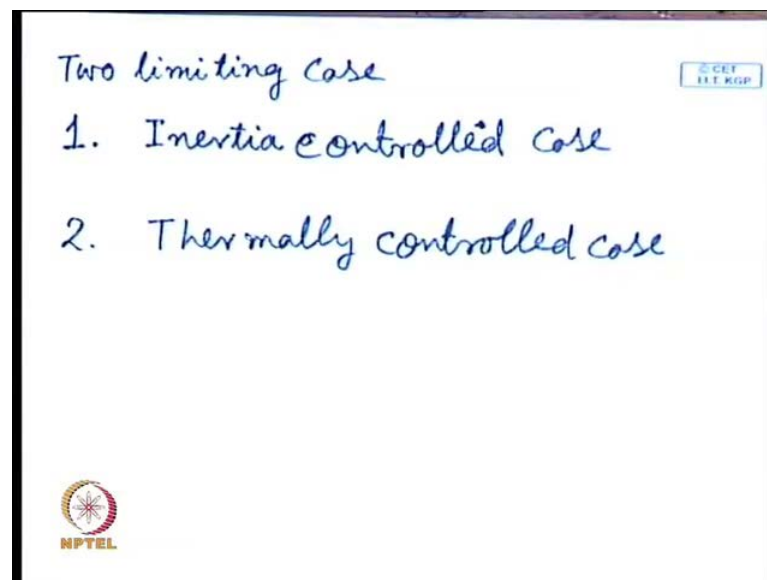 Two limiting Case
© CET
I.I.T. KGP
1. Inertia controlled Case
2. Thermally controlled case
NPTEL